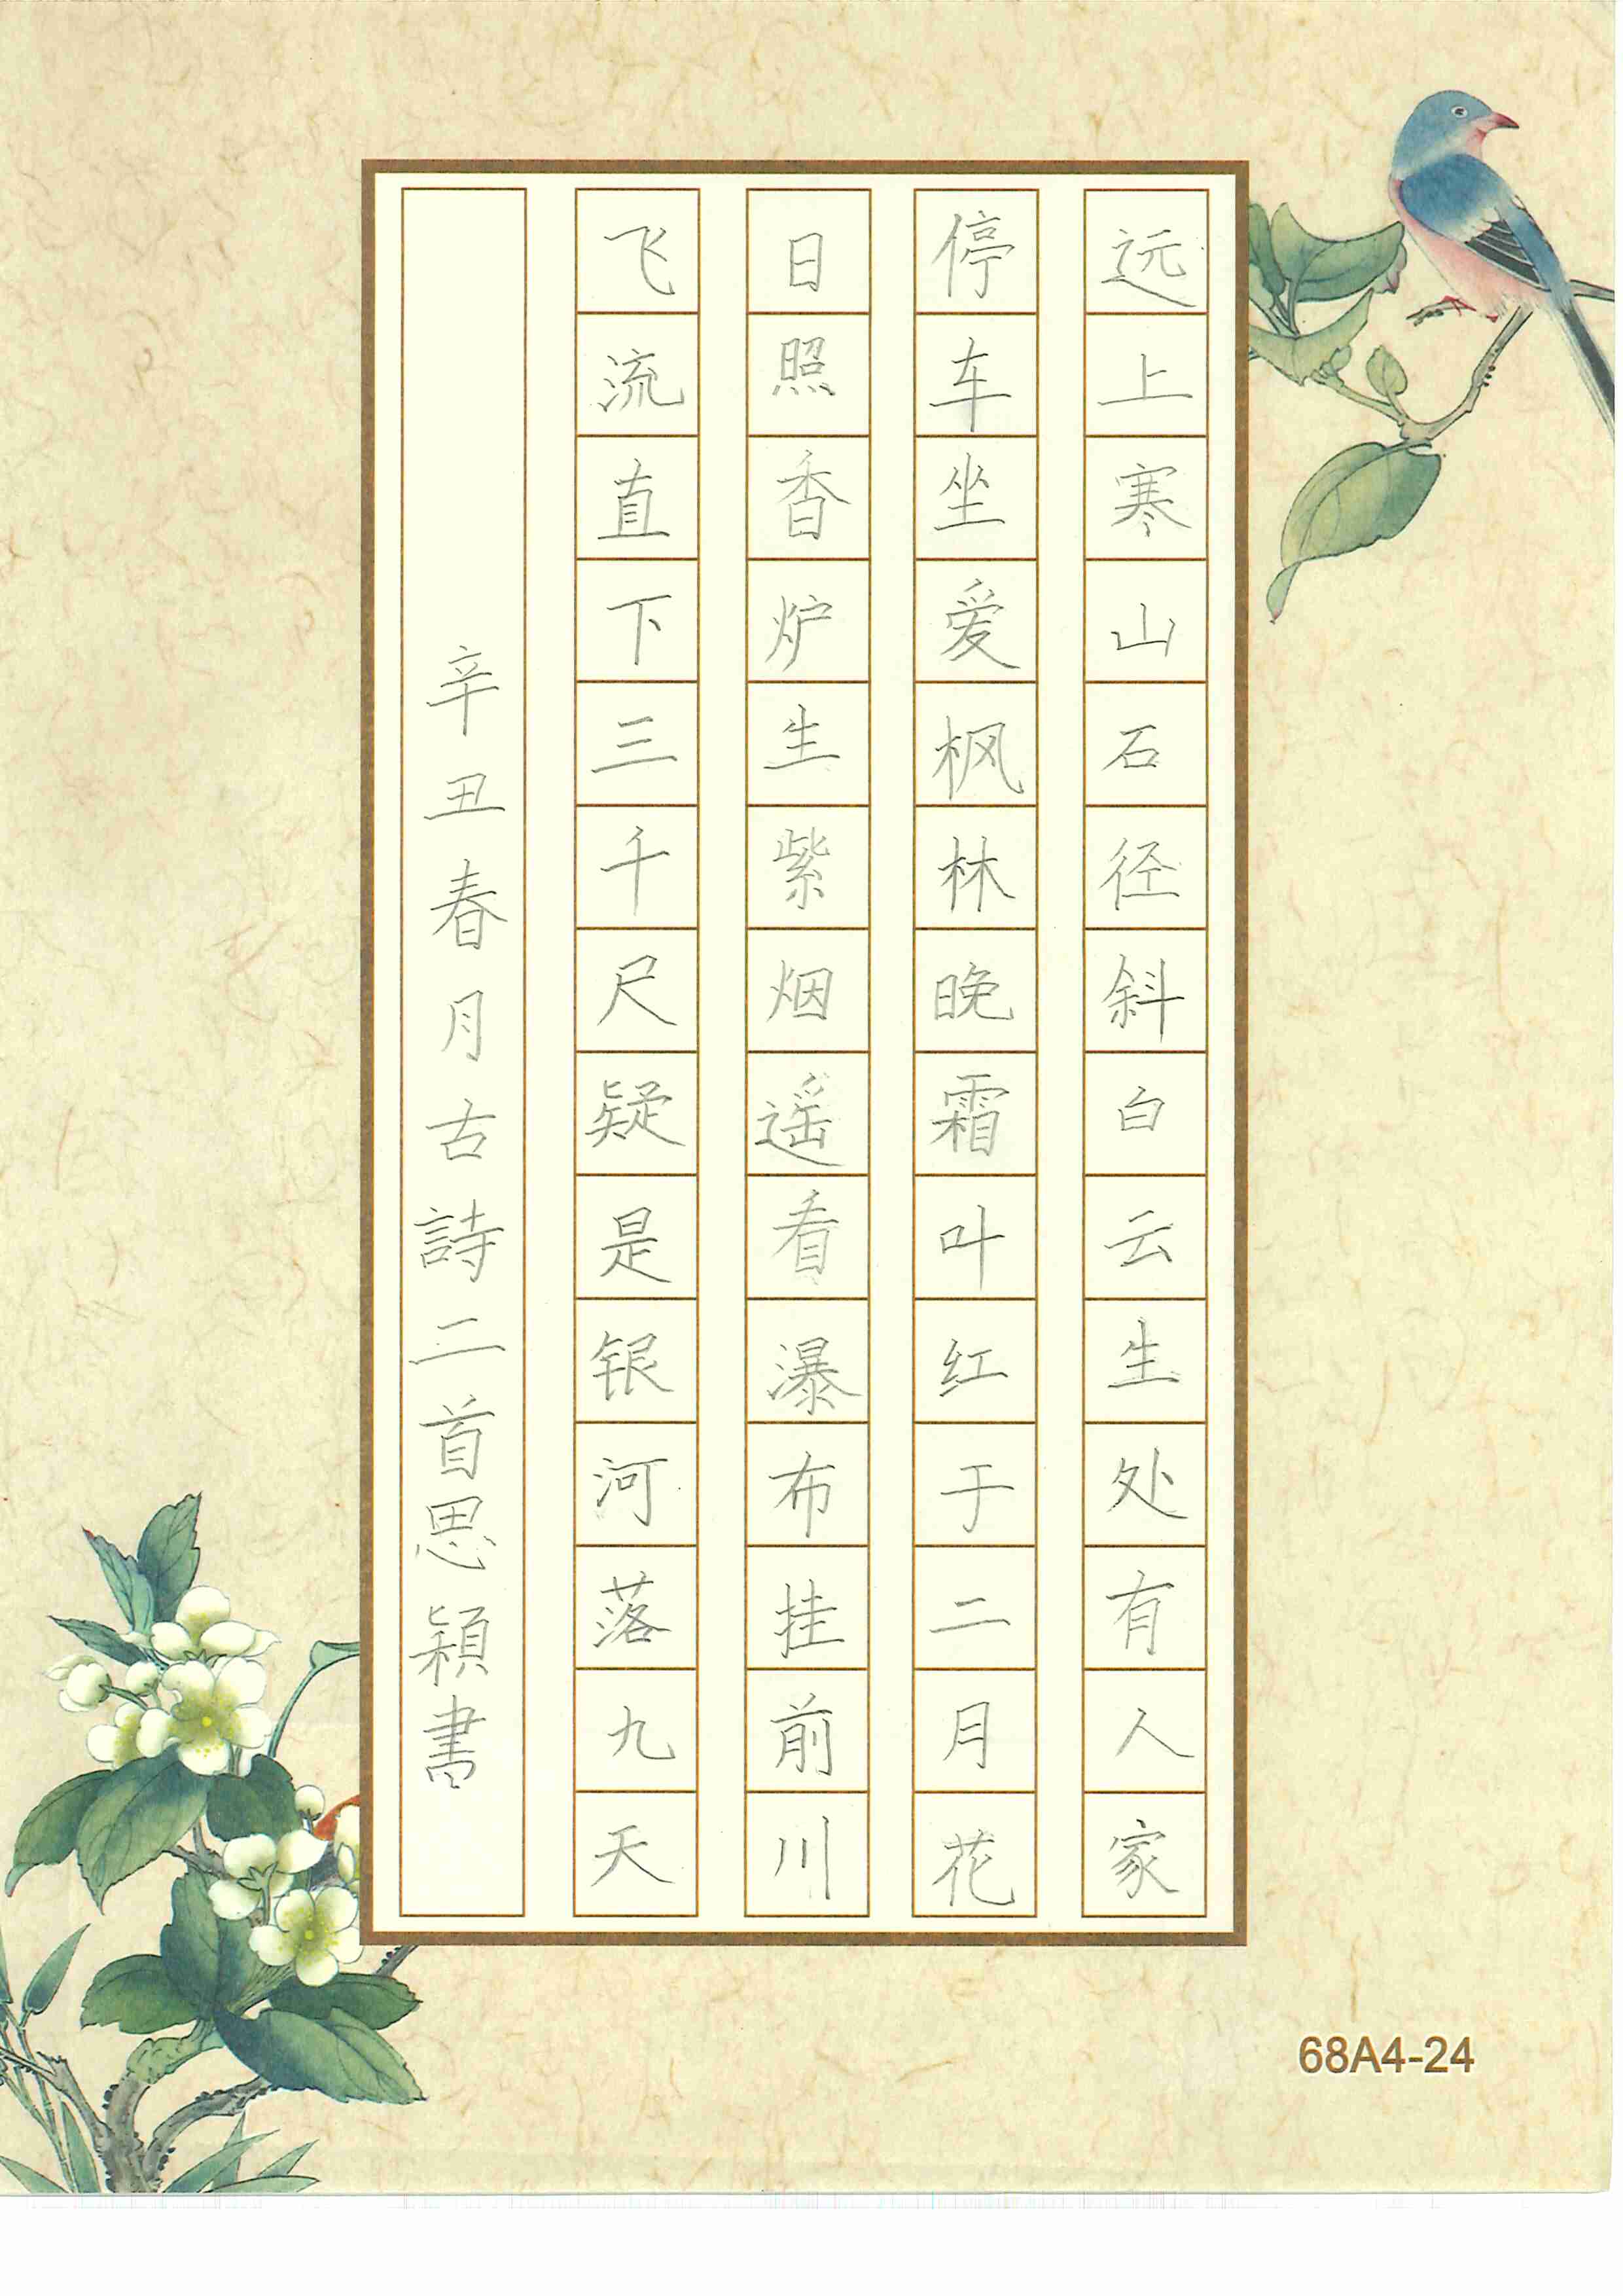 远上寒山石径斜白云生处有人家
停车坐爱枫林晚霜叶红于二月花
日照香炉生紫烟遥看瀑布挂前川
飞流直下三千尺疑是银河落九天
辛丑春月古詩二首思穎書
68A4-24